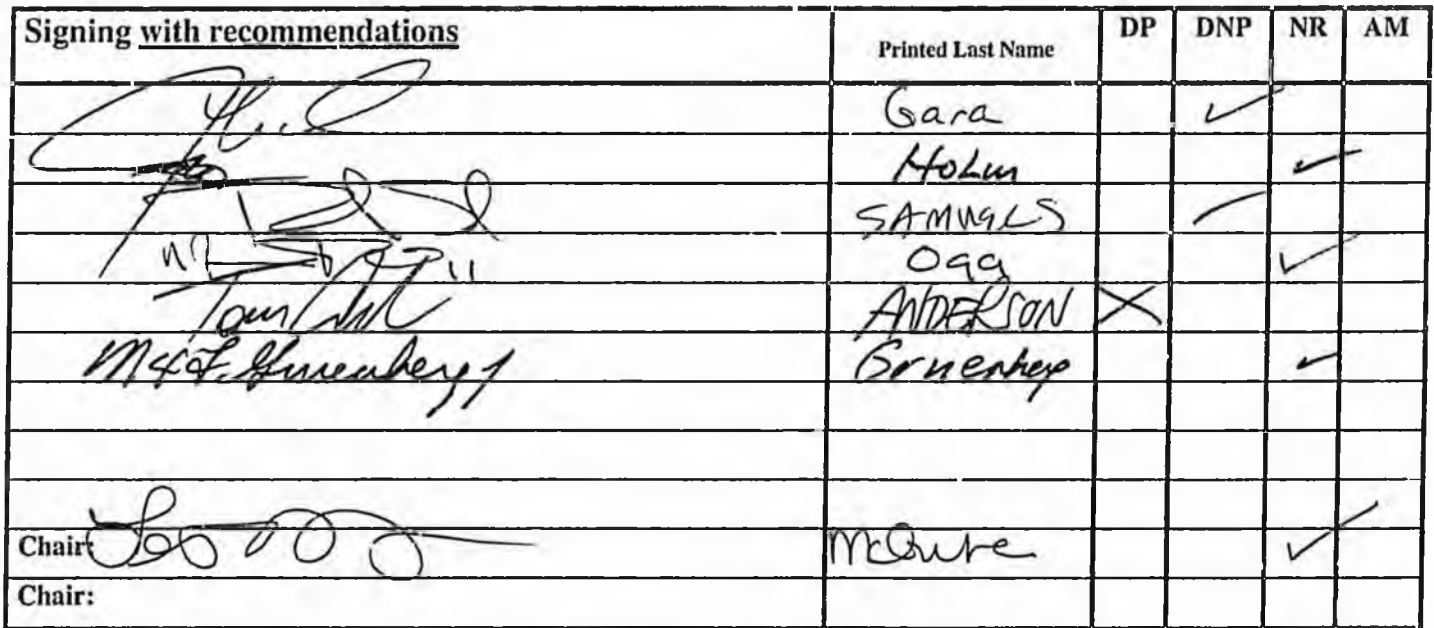 Signing with recommendations Printed Last Name DP DNP NR AM
Gara ✓
Holm ✓
SAMUELS ✓
Ogg ✓
Tom ANDERSON X
Max F. Gruenberg Gruenberg ✓
Chair: McGuire ✓
Chair: